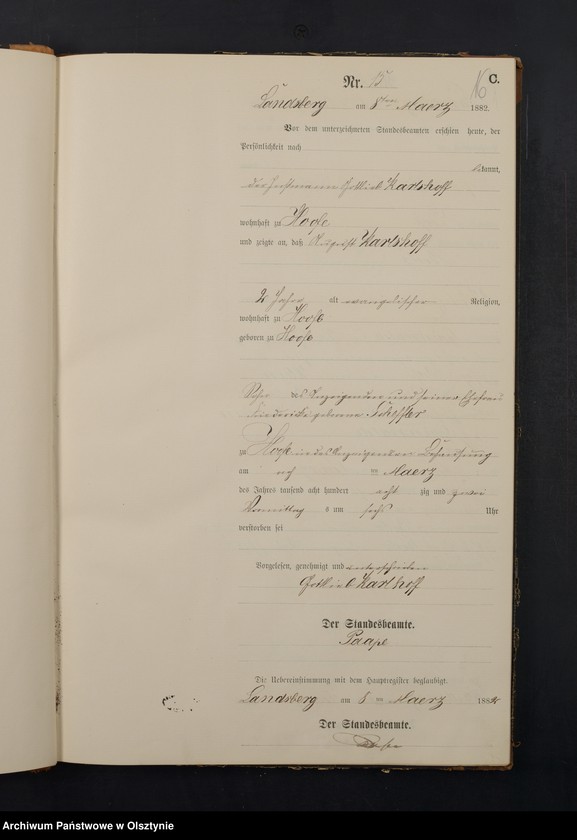 Nr. 15 16 C.
Landsberg am 8ten Maerz 1882.
Vor dem unterzeichneten Standesbeamten erschien heute, der
Persönlichkeit nach
bekannt,
der Gottlieb Karlshoff
wohnhaft zu
und zeigte an, daß August Karlshoff
2 Jahre alt evangelischer Religion,
wohnhaft zu Hoofe
geboren zu Hoofe
Sohn des Anzeigenden und seiner Ehefrau
geborene Scheffler
zu Hoofe in des Anzeigenden Behausung
am ten Maerz
des Jahres tausend acht hundert acht zig und zwei
Vormittags um sechs Uhr
verstorben sei
Vorgelesen, genehmigt und unterschrieben
Gottlieb Karlshoff
Der Standesbeamte.
Paape
Die Uebereinstimmung mit dem Hauptregister beglaubigt.
Landsberg am 8 ten Maerz 1882
Der Standesbeamte.
Archiwum Państwowe w Olsztynie